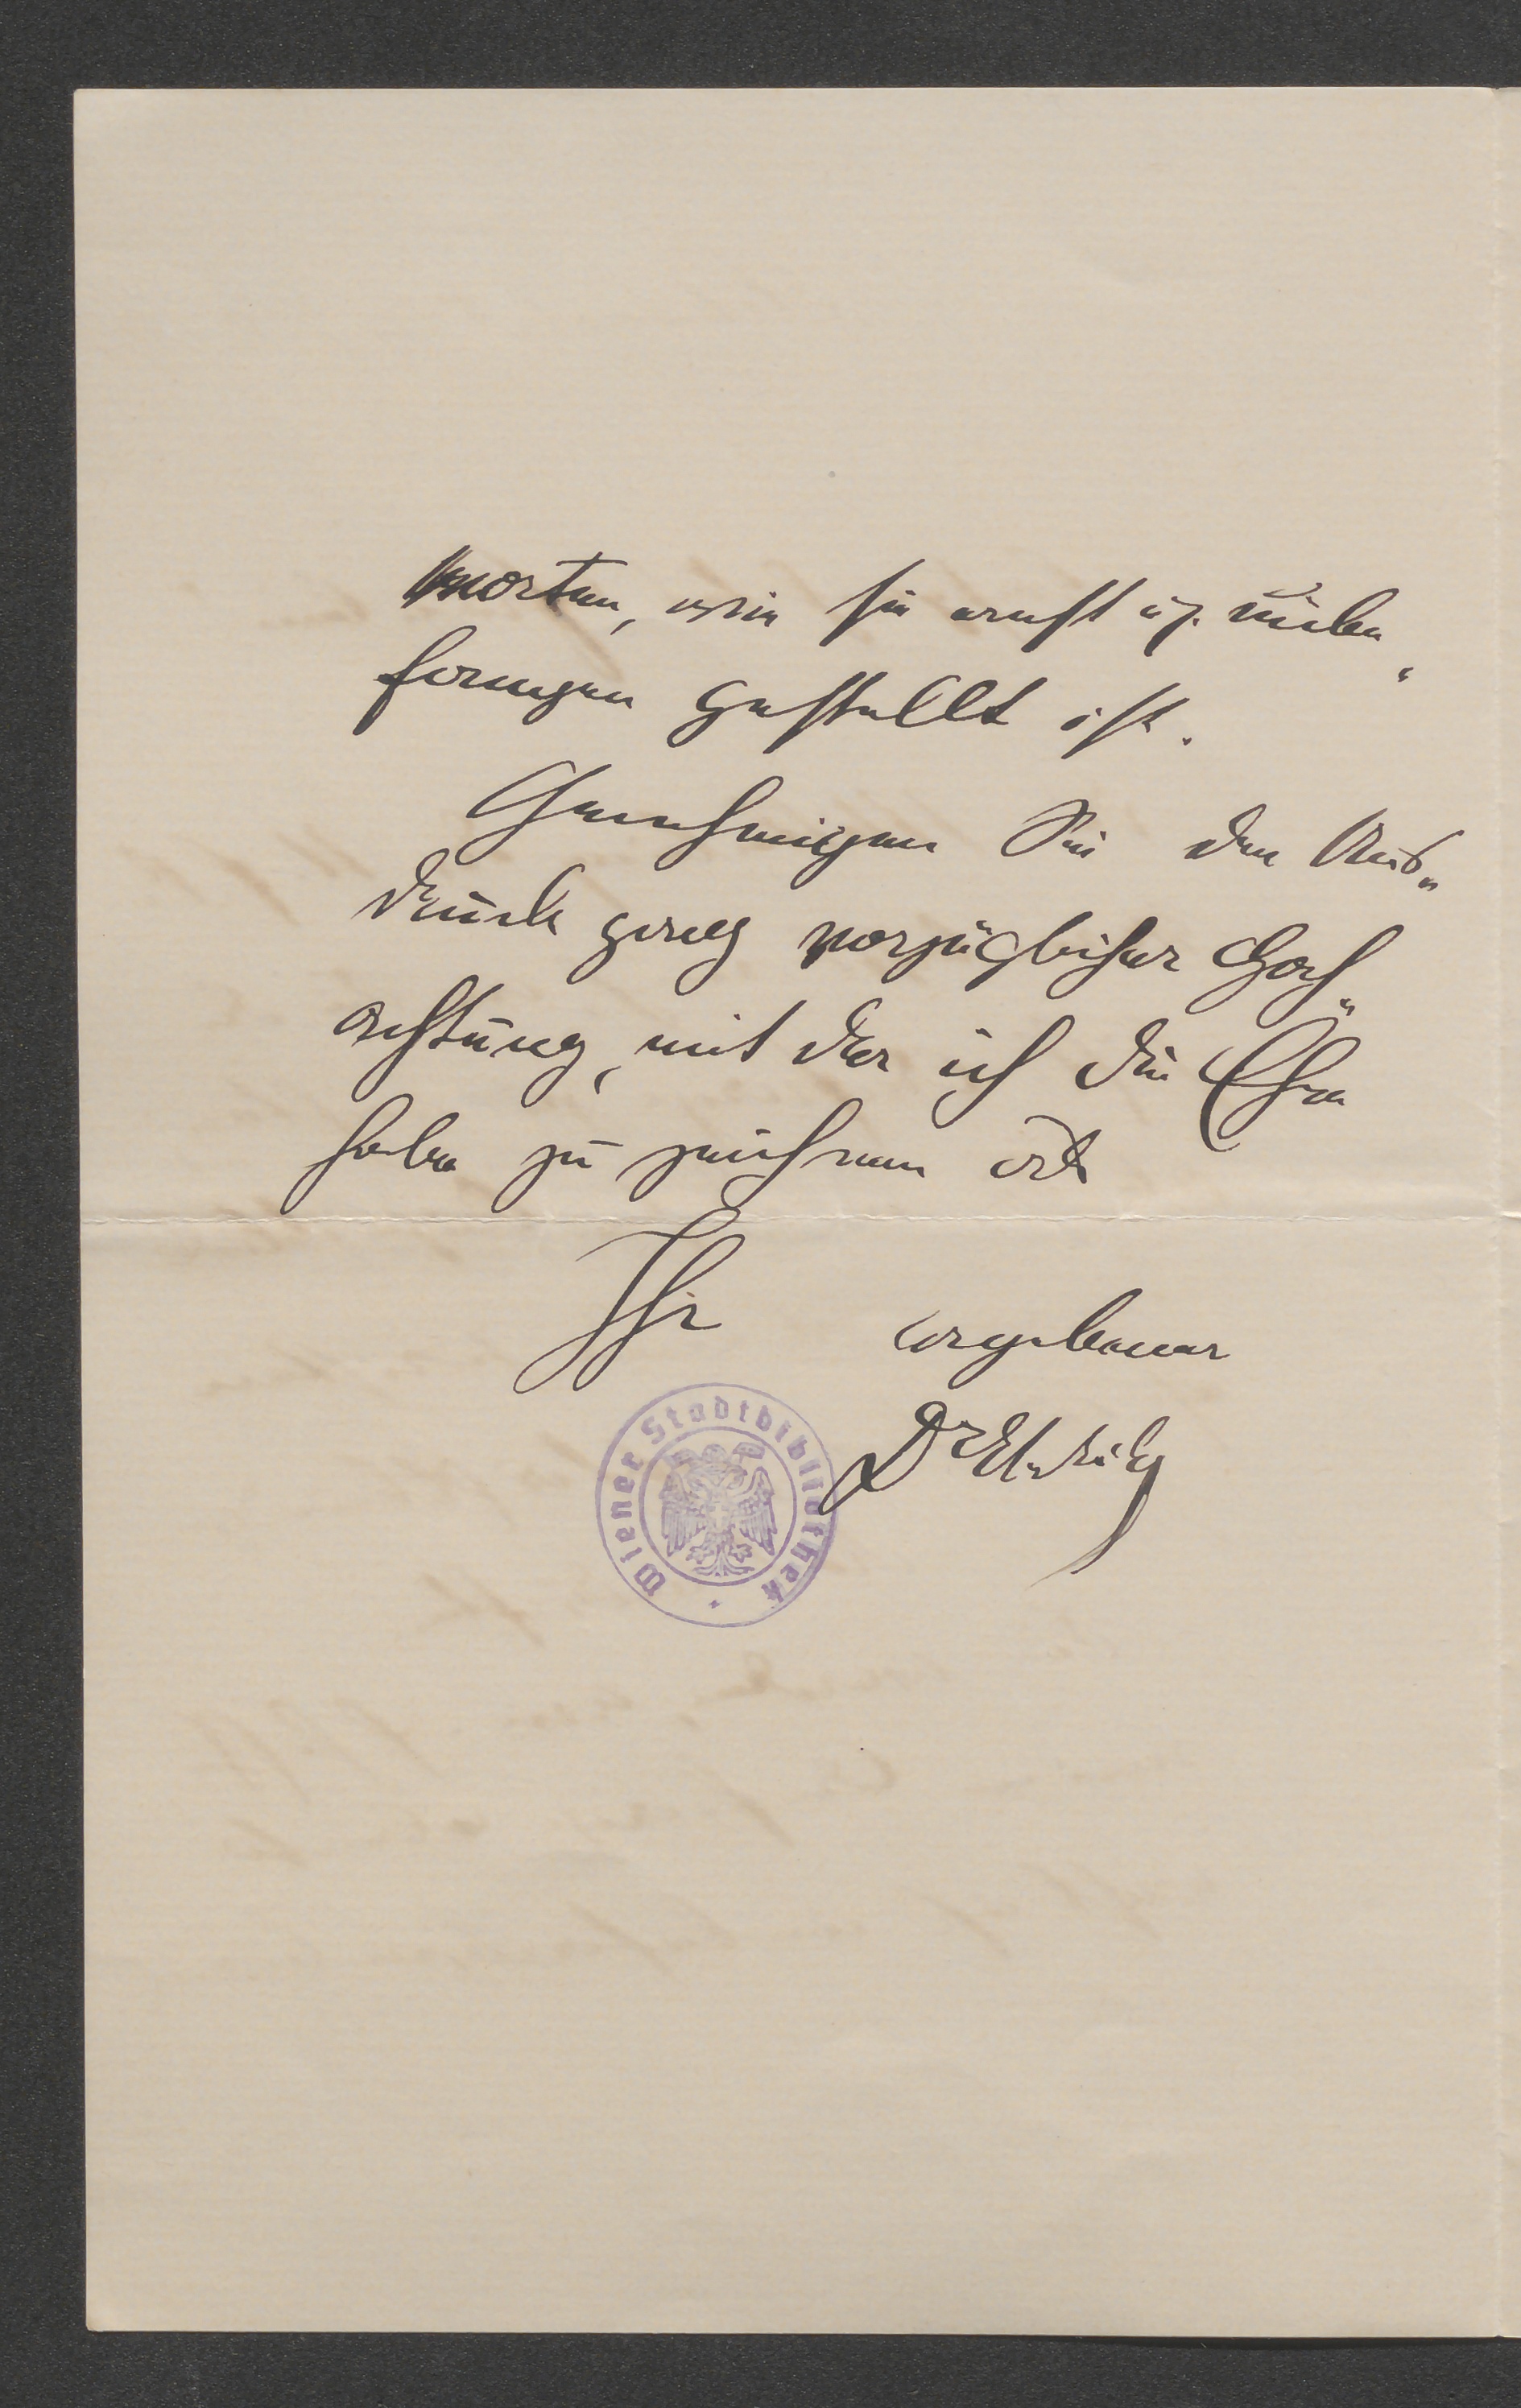 worten, wie sie ernst u. unbe„
fangen gestellt ist.
Genehmigen Sie den Aus„
druck ganz vorzüglicher Hoch„
achtung, mit der ich die Ehre
habe zu zeichnen als
Ihr ergebener
Dr
Wiener Stadtbibliothek